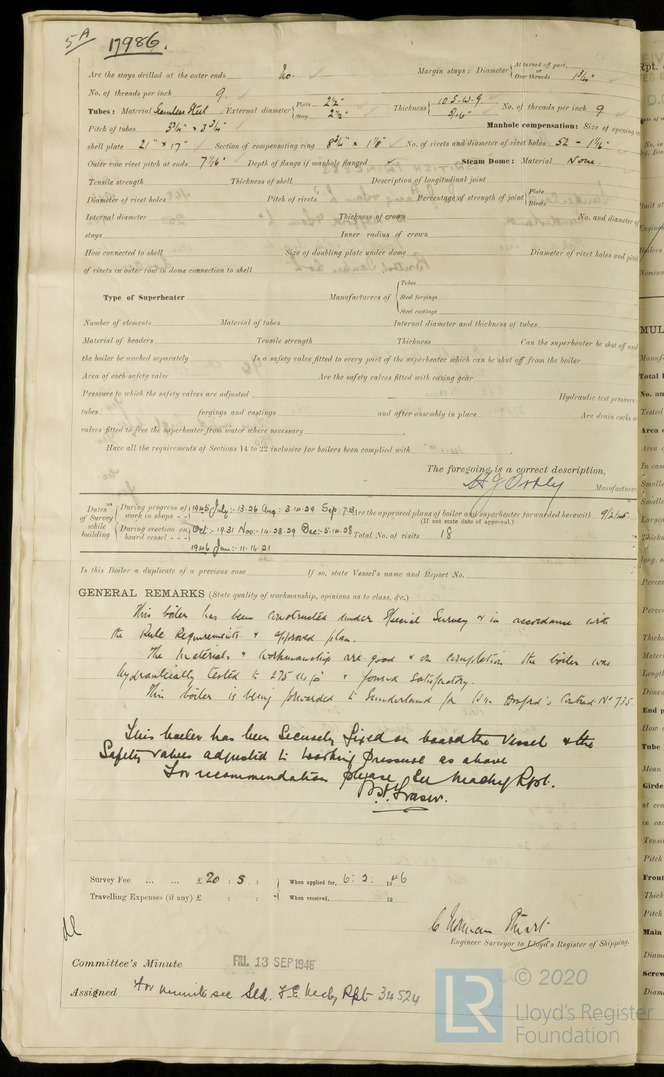 5A 17986.
Are the stays drilled at the outer ends No. Margin stays: Diameter At turned off part, Over threads 1 3/4"
No. of threads per inch 9
Tubes: Material Seamless Steel External diameter Plain 2 1/2" Stay 2 1/2" Thickness 10 S.W.G 5/16" No. of threads per inch 9
Pitch of tubes 3 3/4" x 3 3/4" Manhole compensation: Size of opening in
shell plate 21" x 17" Section of compensating ring No. of rivets and diameter of rivet holes 52 - 1 1/16"
Outer row rivet pitch at ends 7 1/16" Depth of flange if manhole flanged ✓ Steam Dome: Material None.
Tensile strength Thickness of shell Description of longitudinal joint
Diameter of rivet holes Pitch of rivets Percentage of strength of joint Plate Rivets
Internal diameter Thickness of crown No. and diameter of
stays Inner radius of crown
How connected to shell Size of doubling plate under dome Diameter of rivet holes and pitch
of rivets in outer row in dome connection to shell
Type of Superheater Manufacturers of Tubes Steel forgings Steel castings
Number of elements Material of tubes Internal diameter and thickness of tubes
Material of headers Tensile strength Thickness Can the superheater be shut off and
the boiler be worked separately Is a safety valve fitted to every part of the superheater which can be shut off from the boiler
Area of each safety valve Are the safety valves fitted with easing gear
Pressure to which the safety valves are adjusted Hydraulic test pressure
tubes forgings and castings and after assembly in place Are drain cocks or
valves fitted to free the superheater from water where necessary
Have all the requirements of Sections 14 to 22 inclusive for boilers been complied with
The foregoing is a correct description,
Manufacturer
Dates of Survey while building During progress of work in shops - - 1945 July:- 13·26 Aug:- 3·14·29 Sep:- 7·13 Are the approved plans of boiler and superheater forwarded herewith 9/2/45
(If not state date of approval.)
During erection on board vessel - - - Oct:- 19·31 Nov:- 14·28·29 Dec:- 5·14·28 Total No. of visits 18
1946 Jan:- 11·16·21
Is this Boiler a duplicate of a previous case If so, state Vessel's name and Report No.
GENERAL REMARKS (State quality of workmanship, opinions as to class, &c.)
This boiler has been constructed under Special Survey & in accordance with
the Rule Requirements & approved plan.
The materials & workmanship are good & on completion the boiler was
hydraulically tested to 275 & found satisfactory.
This boiler is being forwarded to Sunderland for Contract No 735.
This boiler has been securely fixed on board the vessel & the
Safety valves adjusted to working pressure as above
For recommendation please see Machy Rpt.
Fraser.
Survey Fee ... ... £ 20 : 5 : When applied for, 6 : 2 : 1946
Travelling Expenses (if any) £ : : When received, 19
C Norman Stuart
Engineer Surveyor to Lloyd's Register of Shipping.
Committee's Minute FRI. 13 SEP 1946
Assigned For minute see Sld. F.E. Machy Rpt 34524
© 2020
LR Lloyd's Register
Foundation